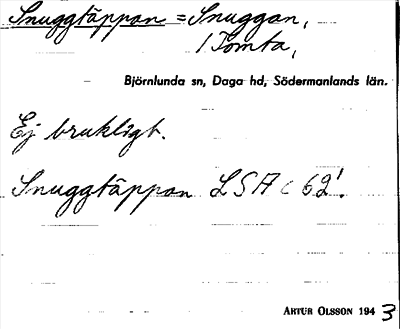 Snuggtäppan = Snuggan,
/Tomta,
Björnlunda sn, Daga hd, Södermanlands län.
Ej brukligt.
Snuggtäppan LSA C 62!.
ARTUR OLSSON 1943